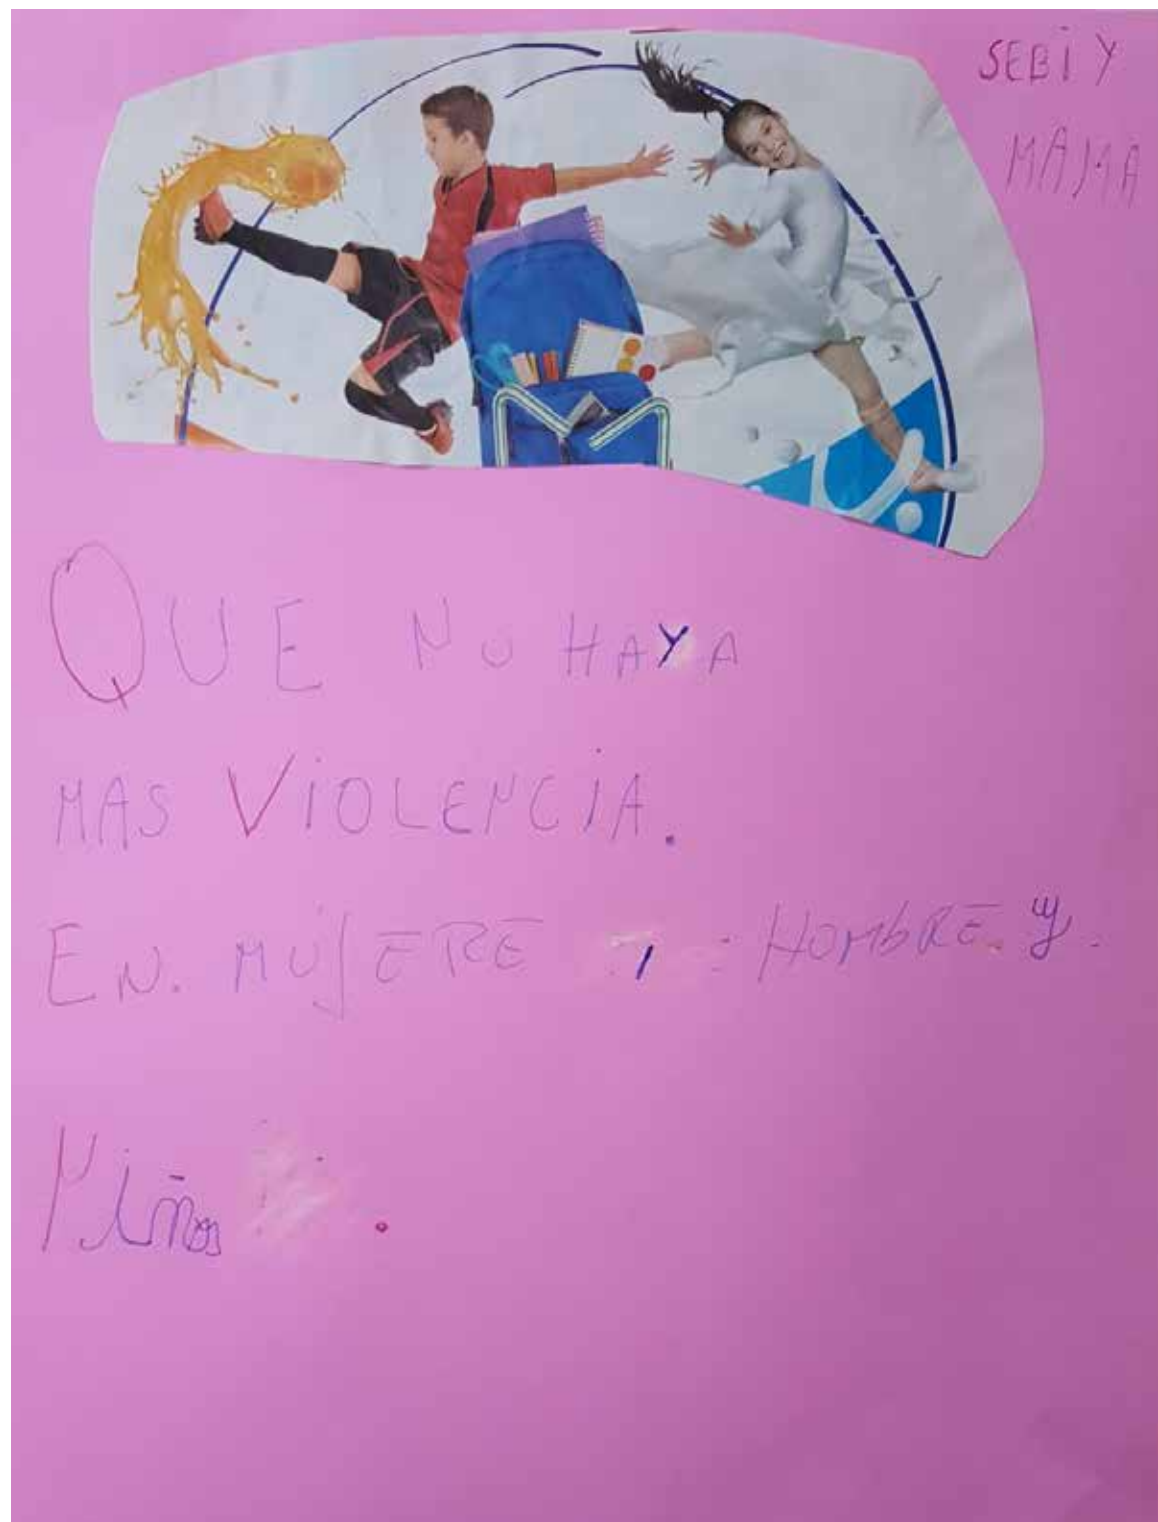 SEBI Y
MAMA
QUE NO HAYA
MAS VIOLENCIA.
EN. MUJERE , HOMBRE y.
Niños .